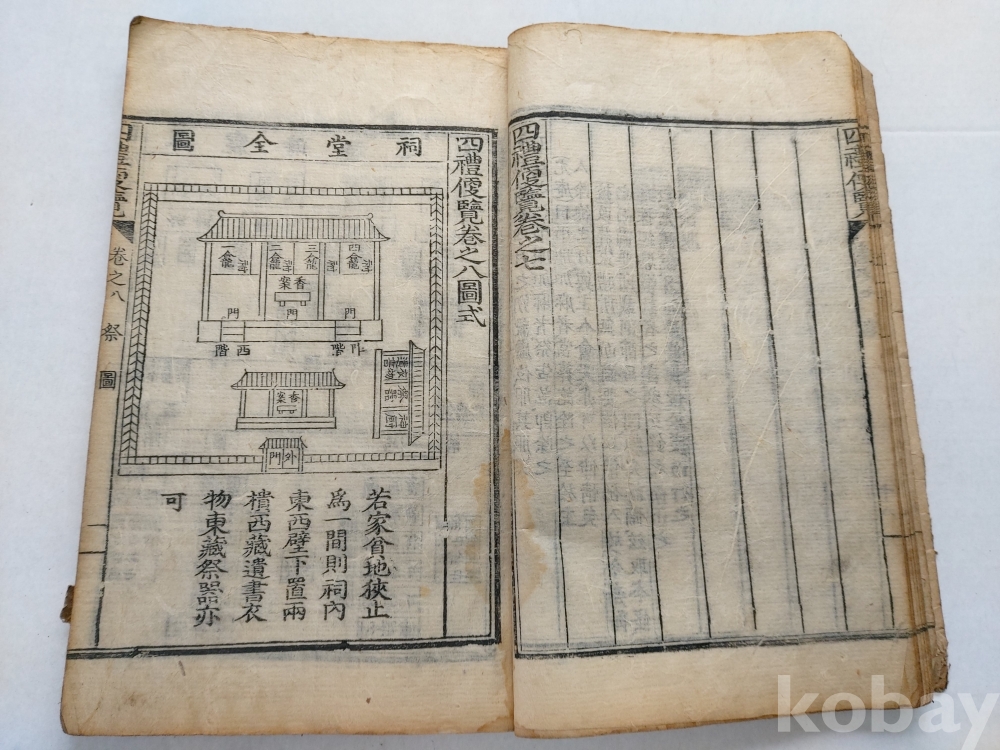 四禮便覽
四禮便覽卷之七
四禮便覽卷之八圖式
祠堂全圖
四龕
三龕
二龕
一龕
香案
門
門
門
阼階
西階
香案
外門
若家貧地狹止
爲一間則祠內
東西壁下置兩
樻西藏遺書衣
物東藏祭器亦
可
四禮便覽
卷之八
祭
圖
一
kobay